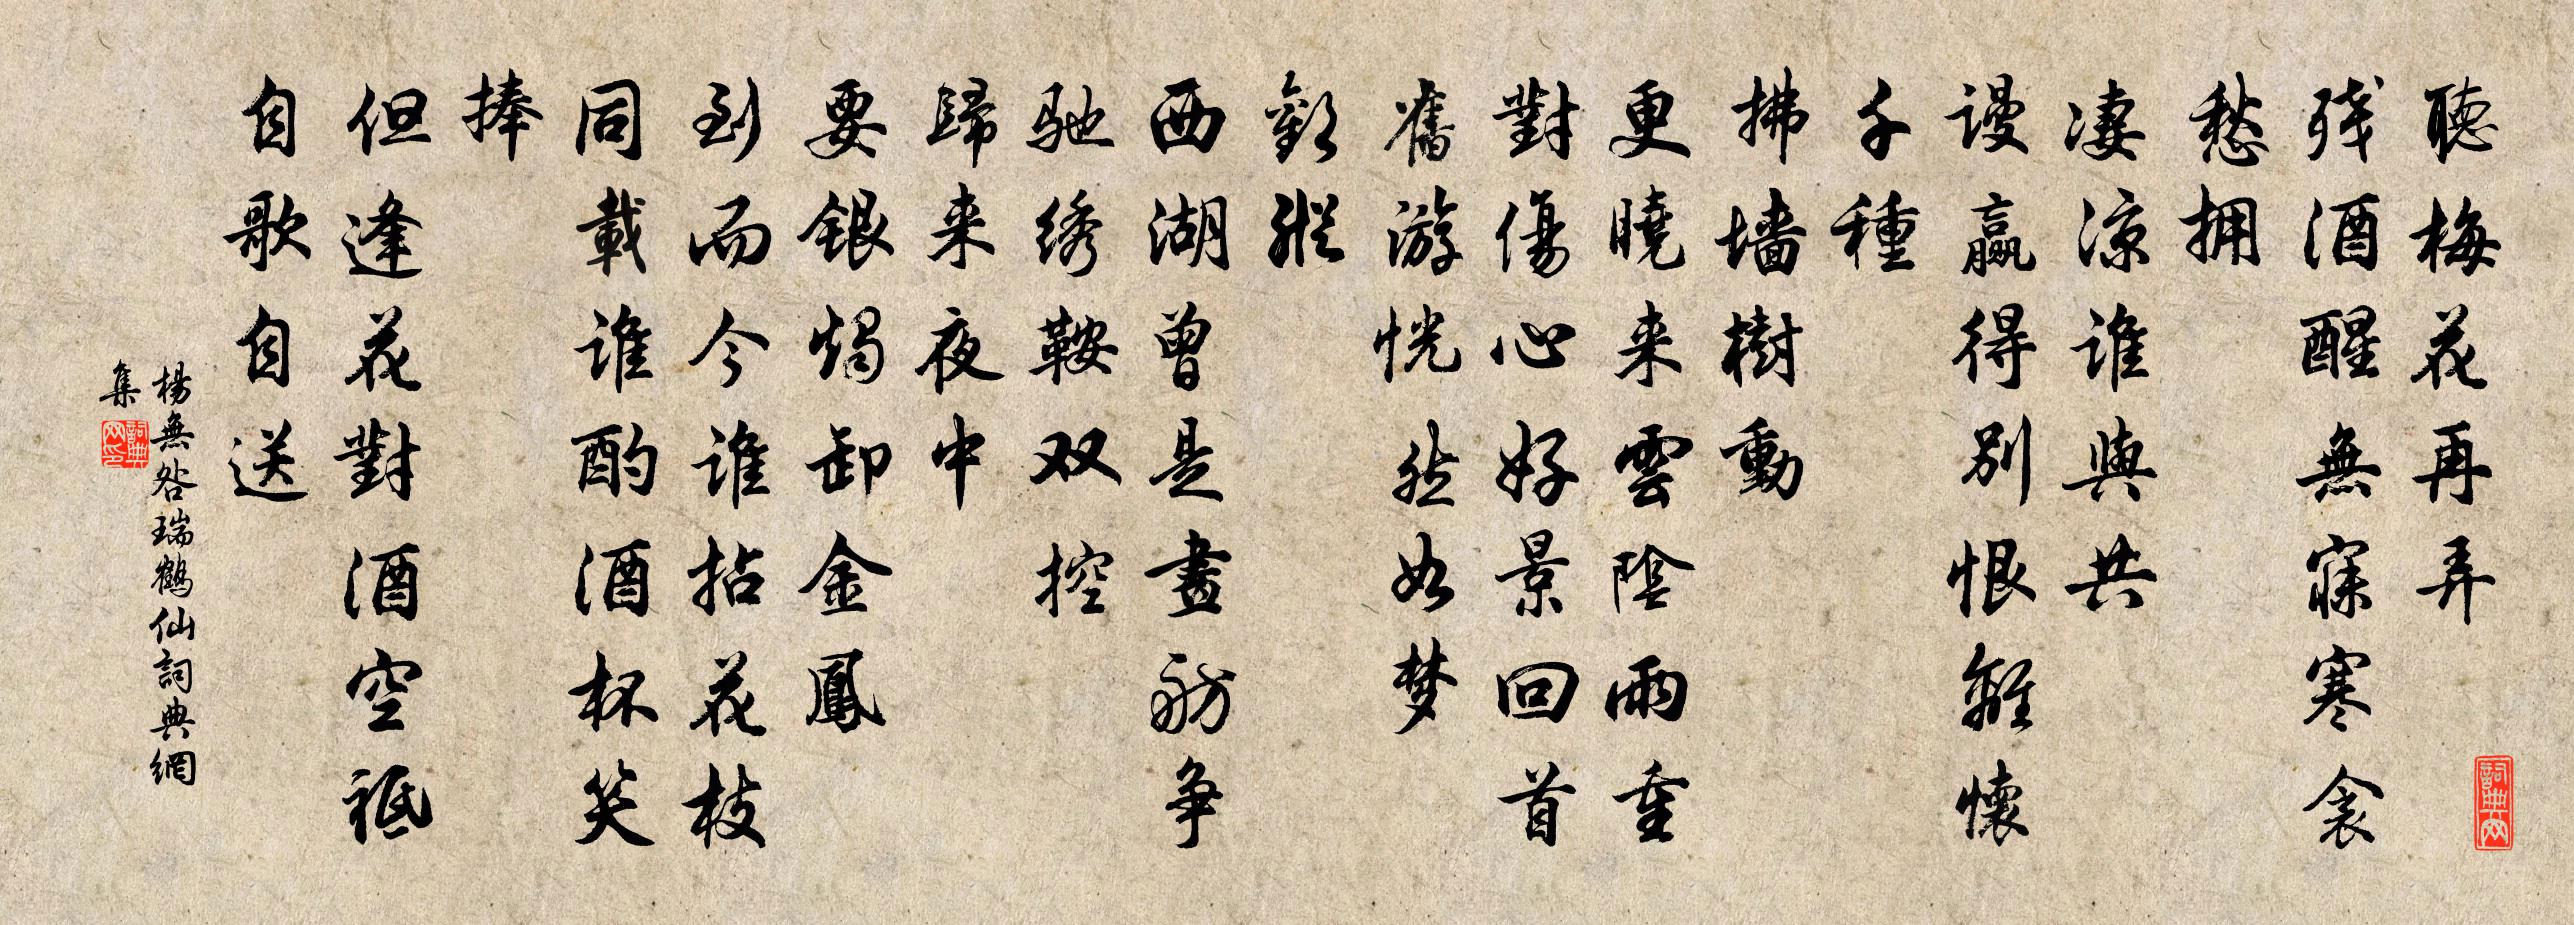 聽梅花再弄
殘酒醒無寐寒衾
愁拥
凄涼誰與共
謾贏得別恨離懷
千種
拂墻樹動
更曉来雲陰雨重
對傷心好景回首
舊游恍然如梦
歡縱
西湖曾是畫舫争
馳绣鞍双控
歸来夜中
要銀燭卸金鳳
到而今誰拈花枝
同載誰酌酒杯笑
捧
但逢花對酒空祗
自歌自送
楊無咎瑞鶴仙詞典網
集
詞典网
詞典网印